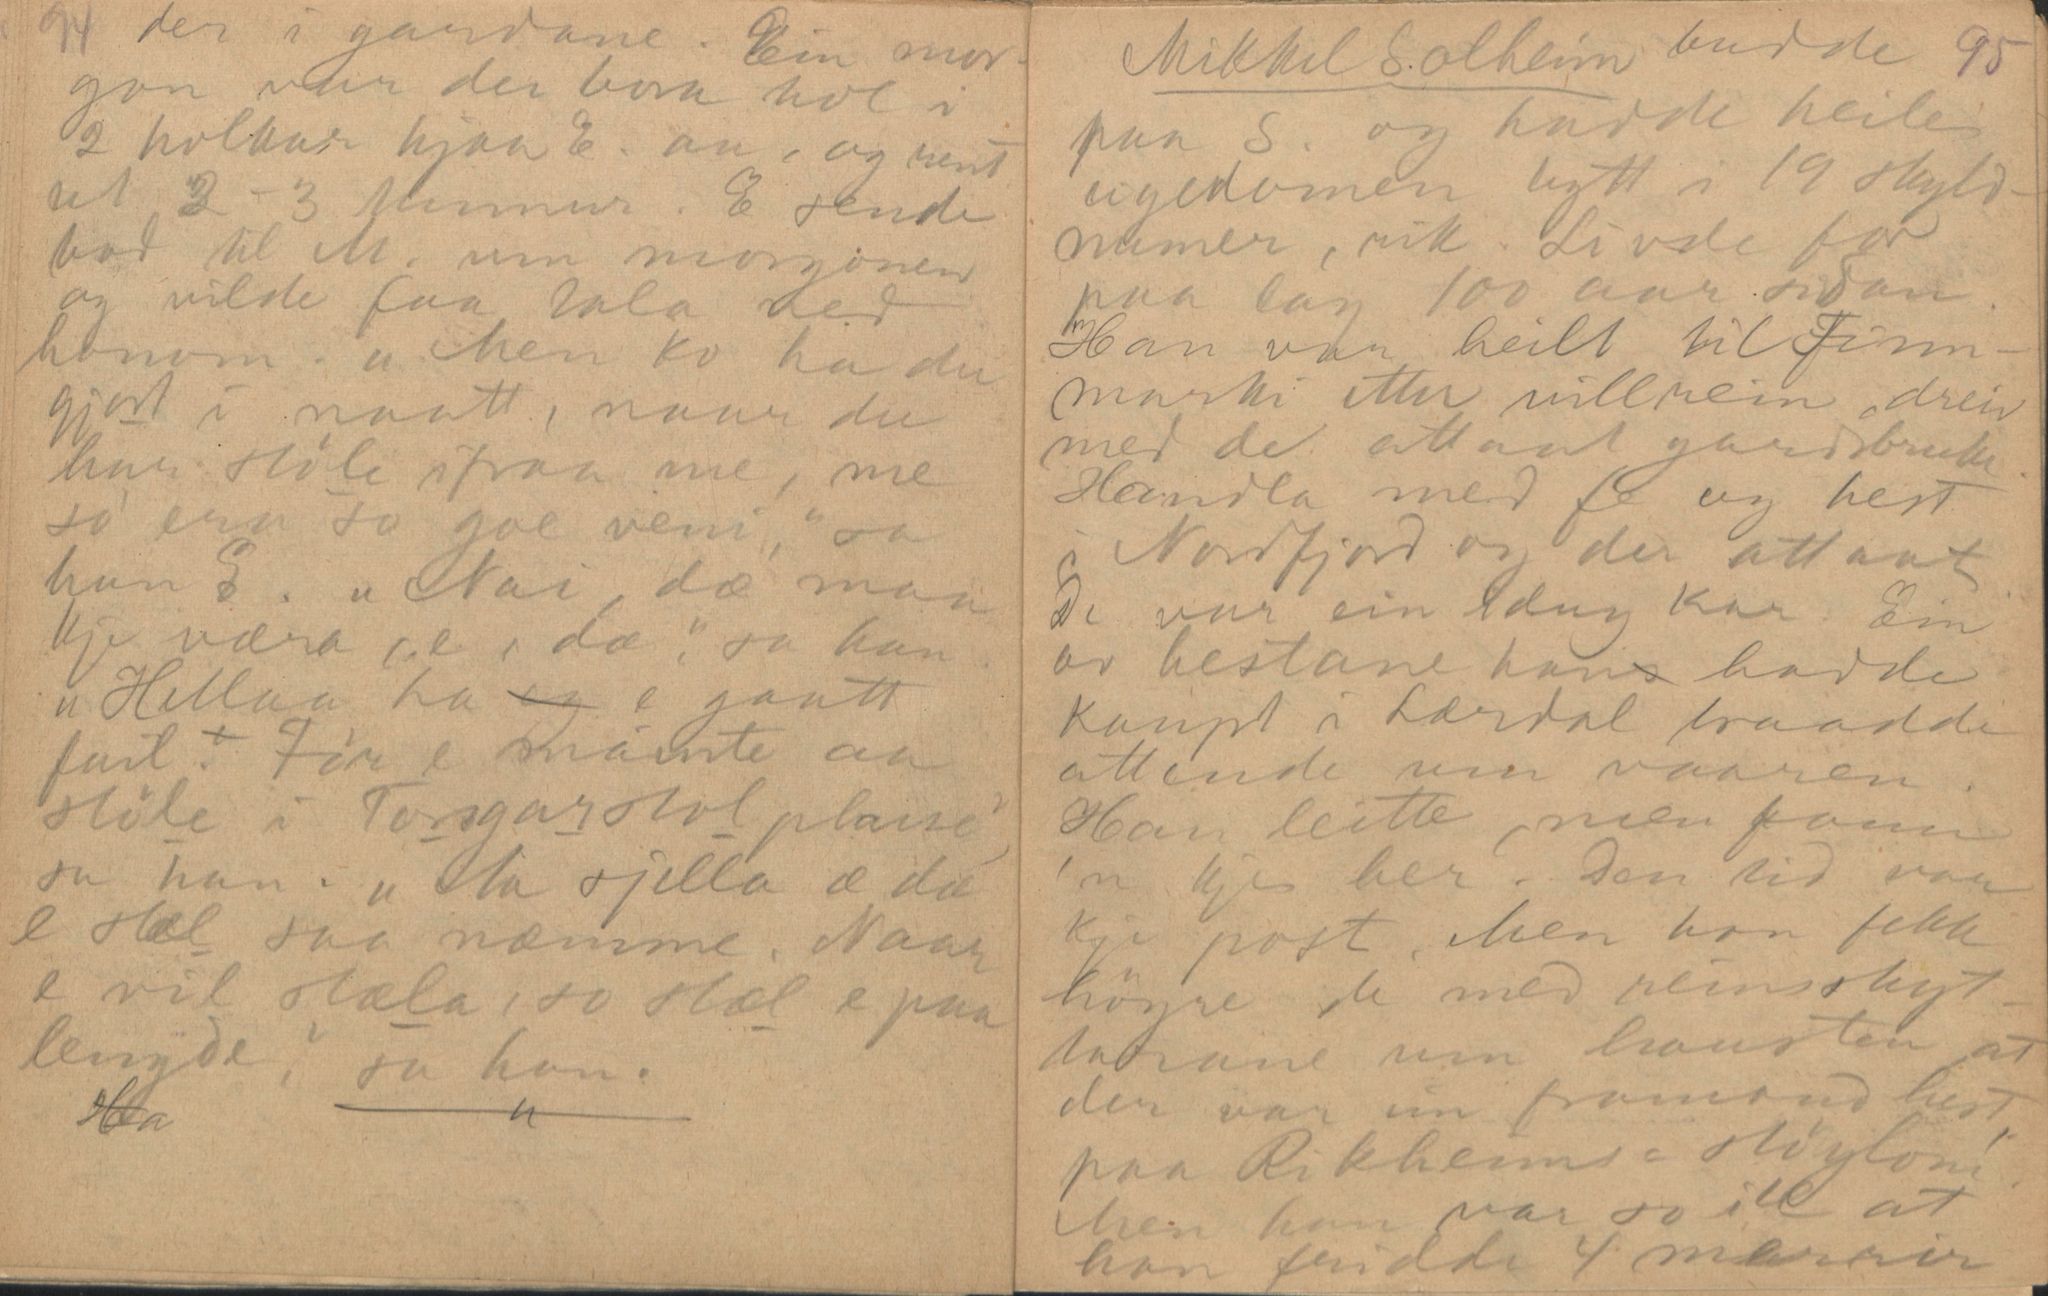 94 der i gardane. Ein mor-
gon var der bora hol i
2 holkar hjaa E. aa, og rent
ut 2-3 tunnur. E sende
bod til M. um morgonen
og vilde faa tala ved
honom. "Men ko ha du
gjort i naatt, naar du
har stole ifraa me, me
so era so goe veni," sa
han E. "Nai, dæ maa
kje væra, e, dæ," sa han.
"Hellaa ha e gaatt
feil. Før e mæinte aa
støle i Torsgarstol plasse",
sa han. "Aa sjella æ dæ
e stæl saa næmme. Naar
e vil stæla, so stæl e paa
lengde," sa han.
Ha
Mikkel Solheim budde 95
paa S. og hadde heile
eigedomen bytt i 19 skyld-
numer, rik. Livde for
paa lag 100 aar sidan.
Han var heilt til Finn-
marki etter villrein, dreiv
med de attaat gardsbruke.
Handla med fe og hest
i Nordfjord og der attaat.
De var ein dug kar. Ein
av hestane hans hadde
kaupt i Lærdal traadde
attende um vaaren.
Han leitte, men fann
'n kje her. Den tid var
kje post. Men han fekk
høyre de med reinsskyt-
tarane um hausten at
der var ein framand hest
paa Rikheims-støyløni.
Men han var so ill at
han fridde 4 merrar